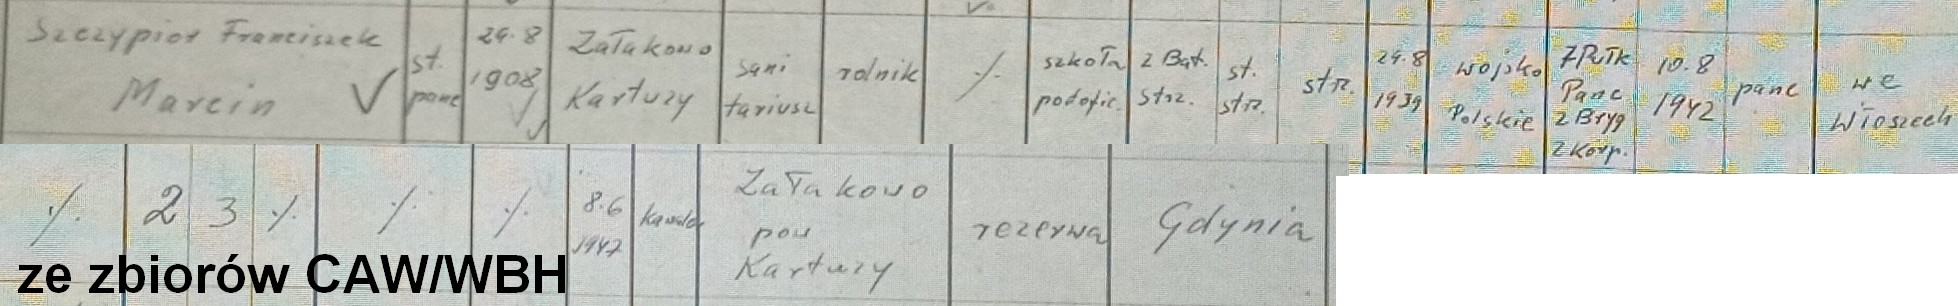 Szczypior Franciszek
Marcin
st.
panc
24.8
1908
Załakowo
Kartuzy
sani
tariusz
rolnik
·/.
szkoła
podofic.
2 Bat.
Strz.
st.
strz.
strz.
24.8
1939
Wojsko
Polskie
7 Pułk
Panc
2 Bryg
2 Korp.
10.8
1942
panc
we
Włoszech
·/.
2
3
·/.
·/.
·/.
8.6
1947
kawaler
Załakowo
pow
Kartuzy
rezerwa
Gdynia
ze zbiorów CAW/WBH